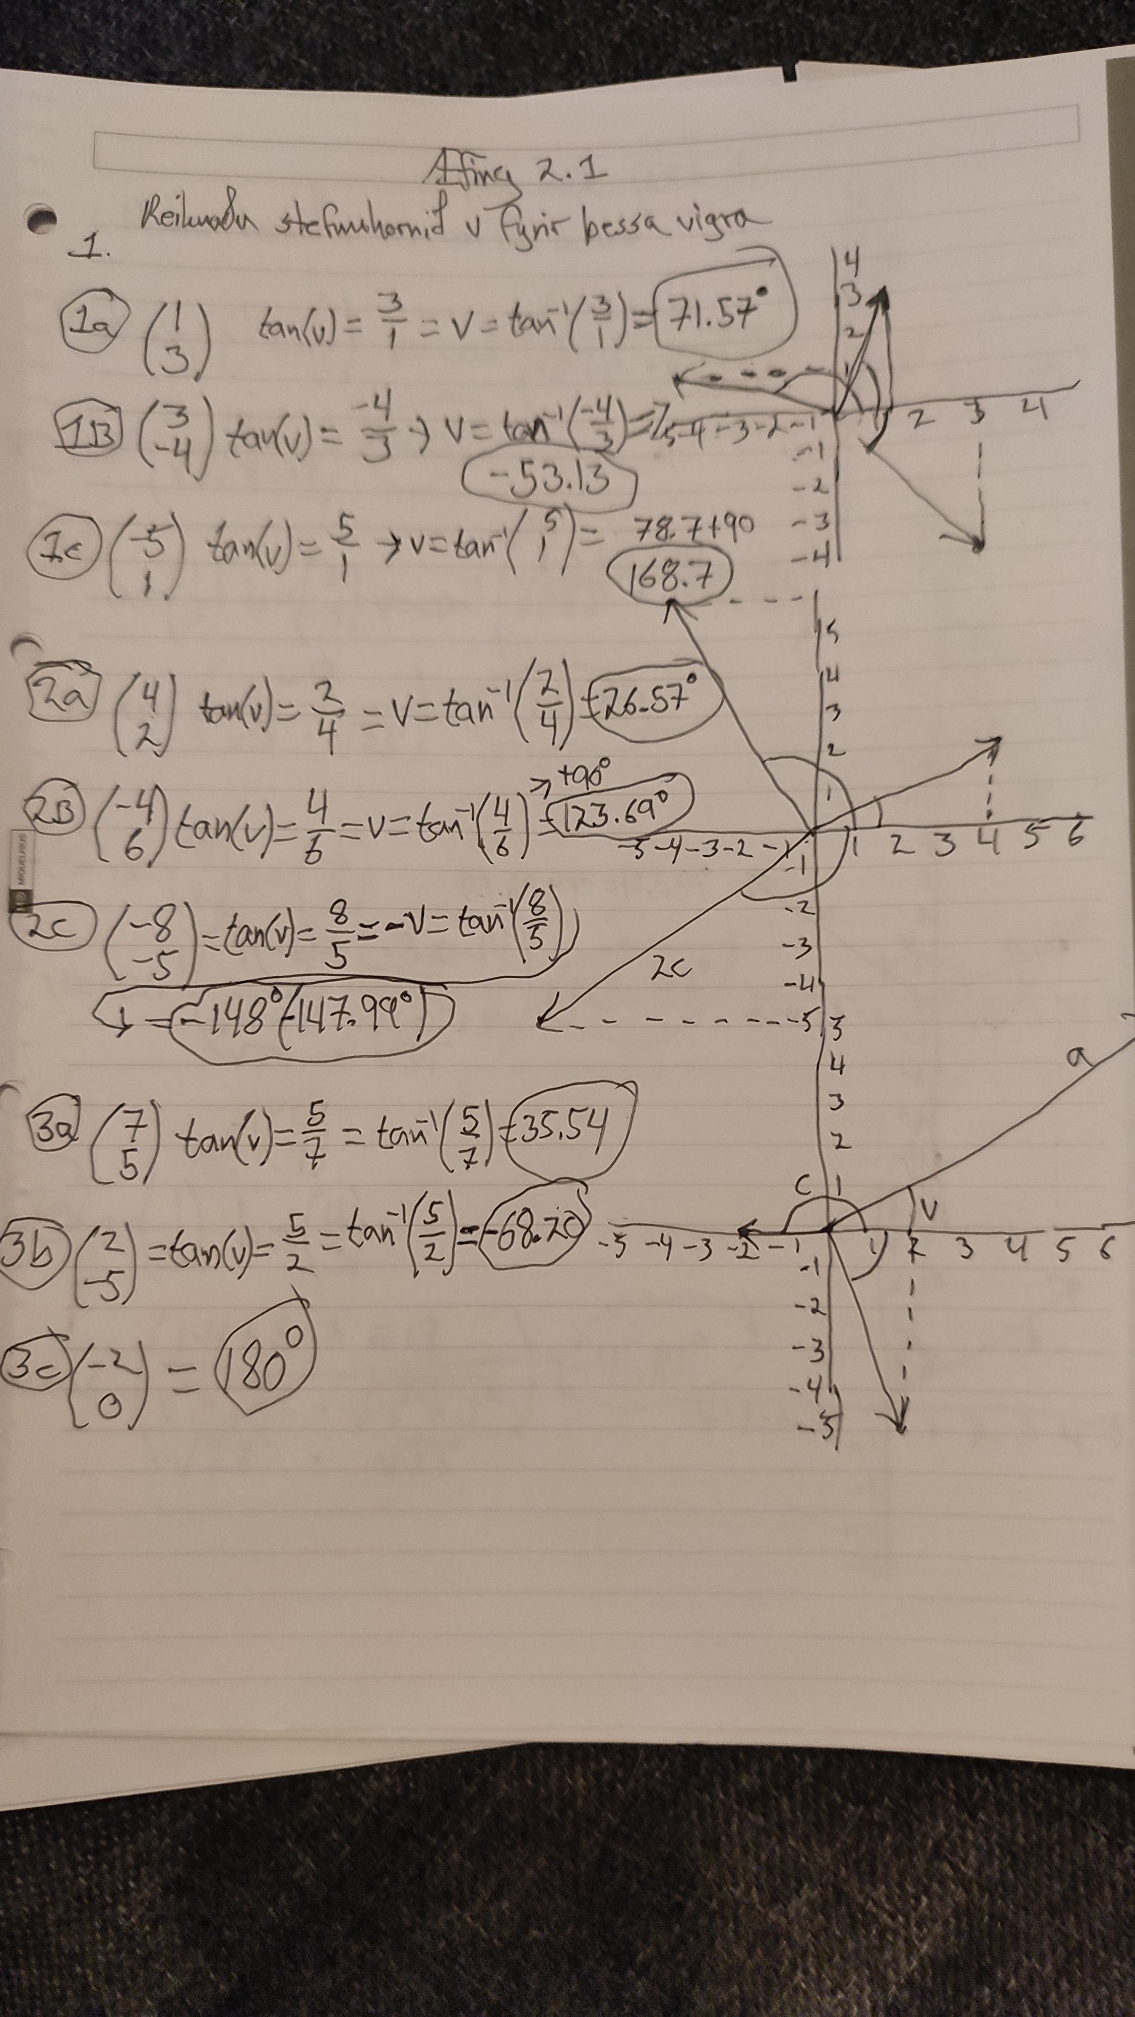 Æfing 2.1
Reiknaðu stefnuhornið v fyrir þessa vigra
1.
1a (1 3) tan(v) = 3/1 = v = tan⁻¹(3/1) = 71.57°
1B (3 -4) tan(v) = -4/3 → v = tan⁻¹(-4/3) =
-53.13
1c (-5 1) tan(v) = 5/1 → v = tan⁻¹(5 1) = 78.7+90
168.7
2a (4 2) tan(v) = 2/4 = v = tan⁻¹(2/4) = 26.57°
2B (-4 6) tan(v) = 4/6 = v = tan⁻¹(4/6) → +90° = 123.69°
2c (-8 -5) = tan(v) = 8/5 = -v = tan⁻¹(8/5)
↓ = -148° (-147.99°)
3a (7 5) tan(v) = 5/7 = tan⁻¹(5/7) = 35.54
3b (2 -5) = tan(v) = 5/2 = tan⁻¹(5/2) = -68.20
3c (-2 0) = 180°
4
3
2
1
-5 -4 -3 -2 -1 1 2 3 4
-1
-2
-3
-4
5
4
3
2
1
-5 -4 -3 -2 -1 1 2 3 4 5 6
-1
-2
-3
-4
-5
2c
5
4
3
2
1
-5 -4 -3 -2 -1 1 2 3 4 5 6
-1
-2
-3
-4
-5
a
c
v
MIQUELRIUS